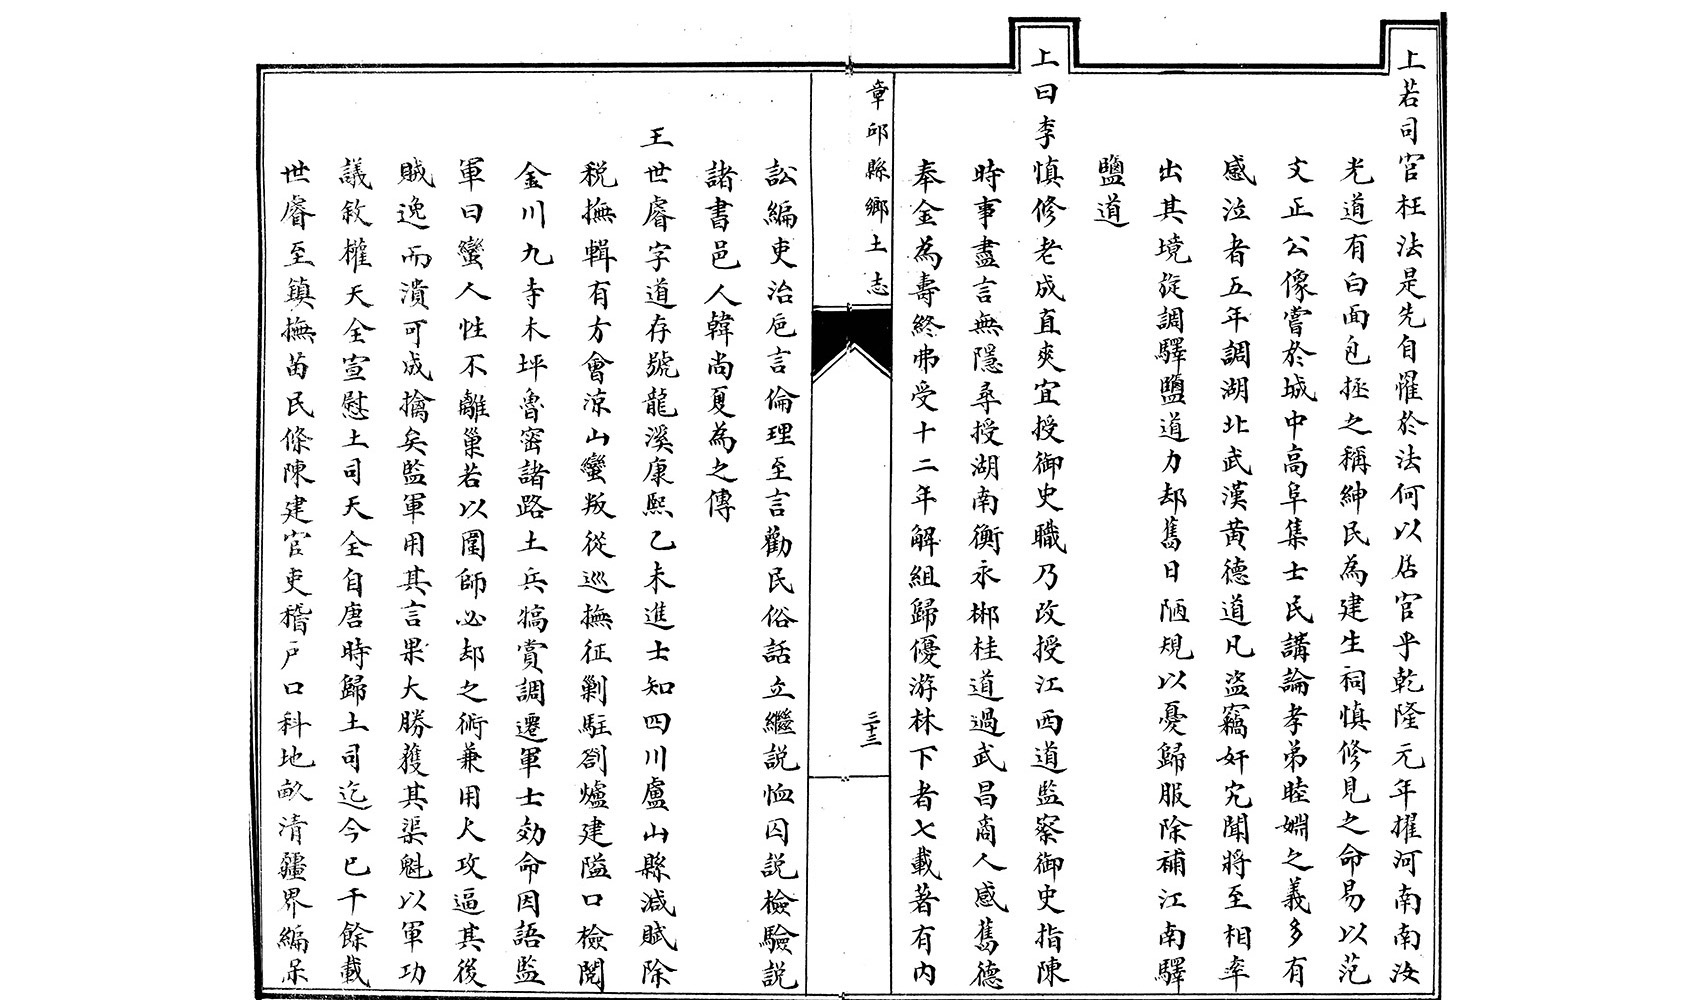 上若司官枉法是先自罹於法何以居官乎乾隆元年擢河南南汝
光道有白面包拯之稱紳民為建生祠慎修見之命易以范
文正公像嘗於城中高阜集士民講論孝弟睦婣之義多有
感泣者五年調湖北武漢黃德道凡盜竊奸宄聞將至相率
出其境旋調驛鹽道力却舊日陋規以憂歸服除補江南驛
鹽道
上曰李慎修老成直爽宜授御史職乃改授江西道監察御史指陳
時事盡言無隱尋授湖南衡永郴桂道過武昌商人感舊德
奉金為壽終弗受十二年解組歸優游林下者七載著有內
章邱縣鄉土志
三十三
訟編吏治卮言倫理至言勸民俗話立繼説恤囚説檢驗説
諸書邑人韓尚夏為之傳
王世睿字道存號龍溪康熙乙未進士知四川盧山縣減賦除
税撫輯有方會凉山蠻叛從巡撫征剿駐劄爐建隘口檢閱
金川九寺木坪魯密諸路土兵犒賞調遷軍士効命因語監
軍曰蠻人性不離巢若以圍師必却之術兼用火攻逼其後
賊逸而潰可成擒矣監軍用其言果大勝獲其渠魁以軍功
議敘權天全宣慰土司天全自唐時歸土司迄今已千餘載
世睿至鎮撫苗民條陳建官吏稽户口科地畝清疆界編保